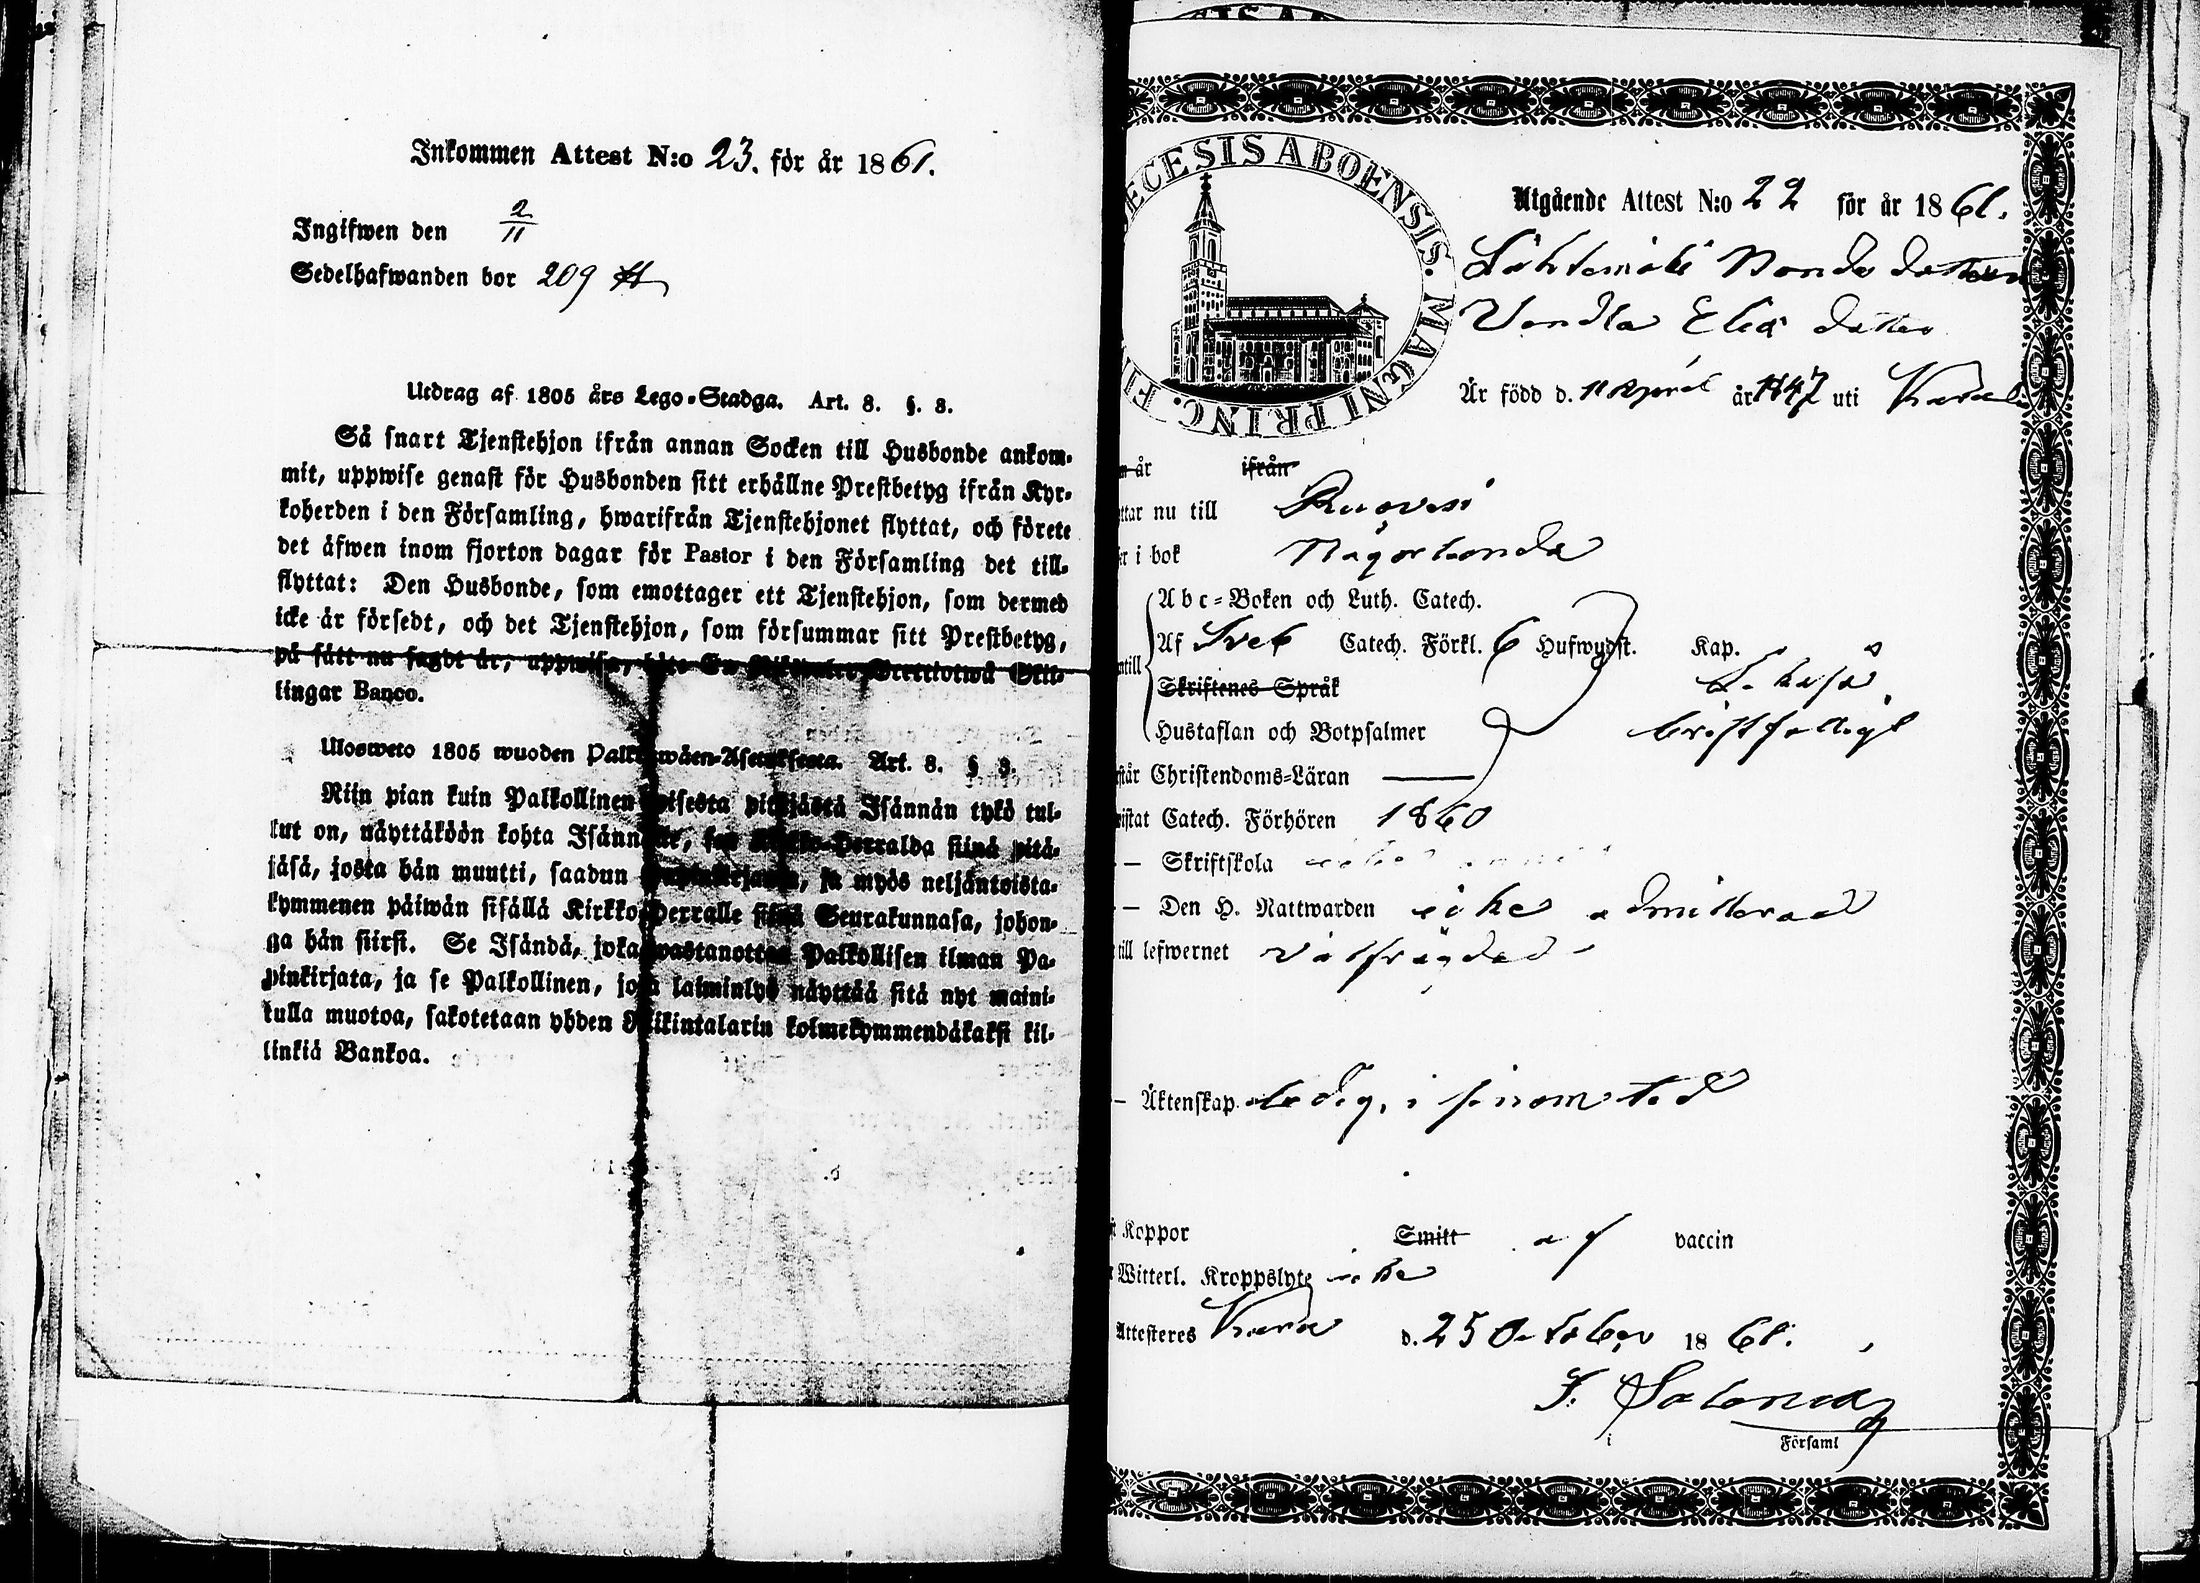 Inkommen Attest N:o 23. för år 1861.
Ingifwen den 2/11
Sedelhafwanden bor 209
Utdrag af 1805 års Lego-Stadga. Art. 8. §. 3.
Så snart Tjenstehjon ifrån annan Socken till Husbonde ankom-
mit, uppwise genast för Husbonden sitt erhållne Prestbetyg ifrån Kyr-
koherden i den Församling, hwarifrån Tjenstehjonet flyttat, och förete
det äfwen inom fjorton dagar för Pastor i den Församling det till-
flyttat: Den Husbonde, som emottager ett Tjenstehjon, som dermed
icke är försedt, och det Tjenstehjon, som försummar sitt Prestbetyg,
på sätt nu sagdt är, uppwisa, böte En Riksdaler Trettiotwå Skil-
lingar Banco.
Ulosweto 1805 wuoden Palkawäen-Asetuksesta. Art. 8. § 3.
Niin pian kuin Palkollinen toisesta pitäjästä Isännän tykö tul-
lut on, näyttäköön kohta Isännälle, sen Kirkko-Herralda siinä pitä-
jäsä, josta hän muutti, saadun Papinkirjansa, ja myös neljäntoista-
kymmenen päiwän sisällä Kirkko-Herralle siinä Seurakunnasa, johon-
ga hän siirsi. Se Isändä, joka wastanottaa Palkollisen ilman Pa-
pinkirjata, ja se Palkollinen, joka laiminlyö näyttää sitä nyt maini-
tulla muotoa, sakotetaan yhden Riikintalarin kolmekymmendäkaksi kil-
linkiä Bankoa.
ECESIS ABOENSIS. MAGNI PRINC. FI
Utgående Attest N:o 22 för år 1861.
Lähtemäki Bonde dottern
Vendla Elia dotter
Är född d. 11 April år 1847 uti
n år ifrån
ttar nu till Ruovesi
r i bok Någorlunda
Abc-Boken och Luth. Catech.
Af Sveb Catech. Förkl. 6 Hufwudst. Kap.
ntill
Skriftenes Språk
Hustaflan och Botpsalmer bristfälligt
står Christendoms-Läran
wistat Catech. Förhören 1860
— Skriftskola
— Den H. Nattwarden icke admitterad
till lefwernet välfrägdad
— Äktenskap ledig,
Koppor Smitt af vaccin
Witterl. Kroppslyte icke
Attesteres d. 25 October 1861.
i Församl